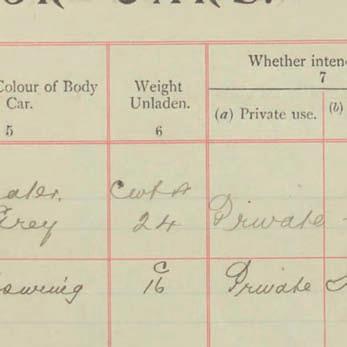 Colour of Body Car.
5
Weight Unladen.
6
Whether inten
7
(a) Private use.
(b)
Cwts
Grey
24
Private
C
16
Private